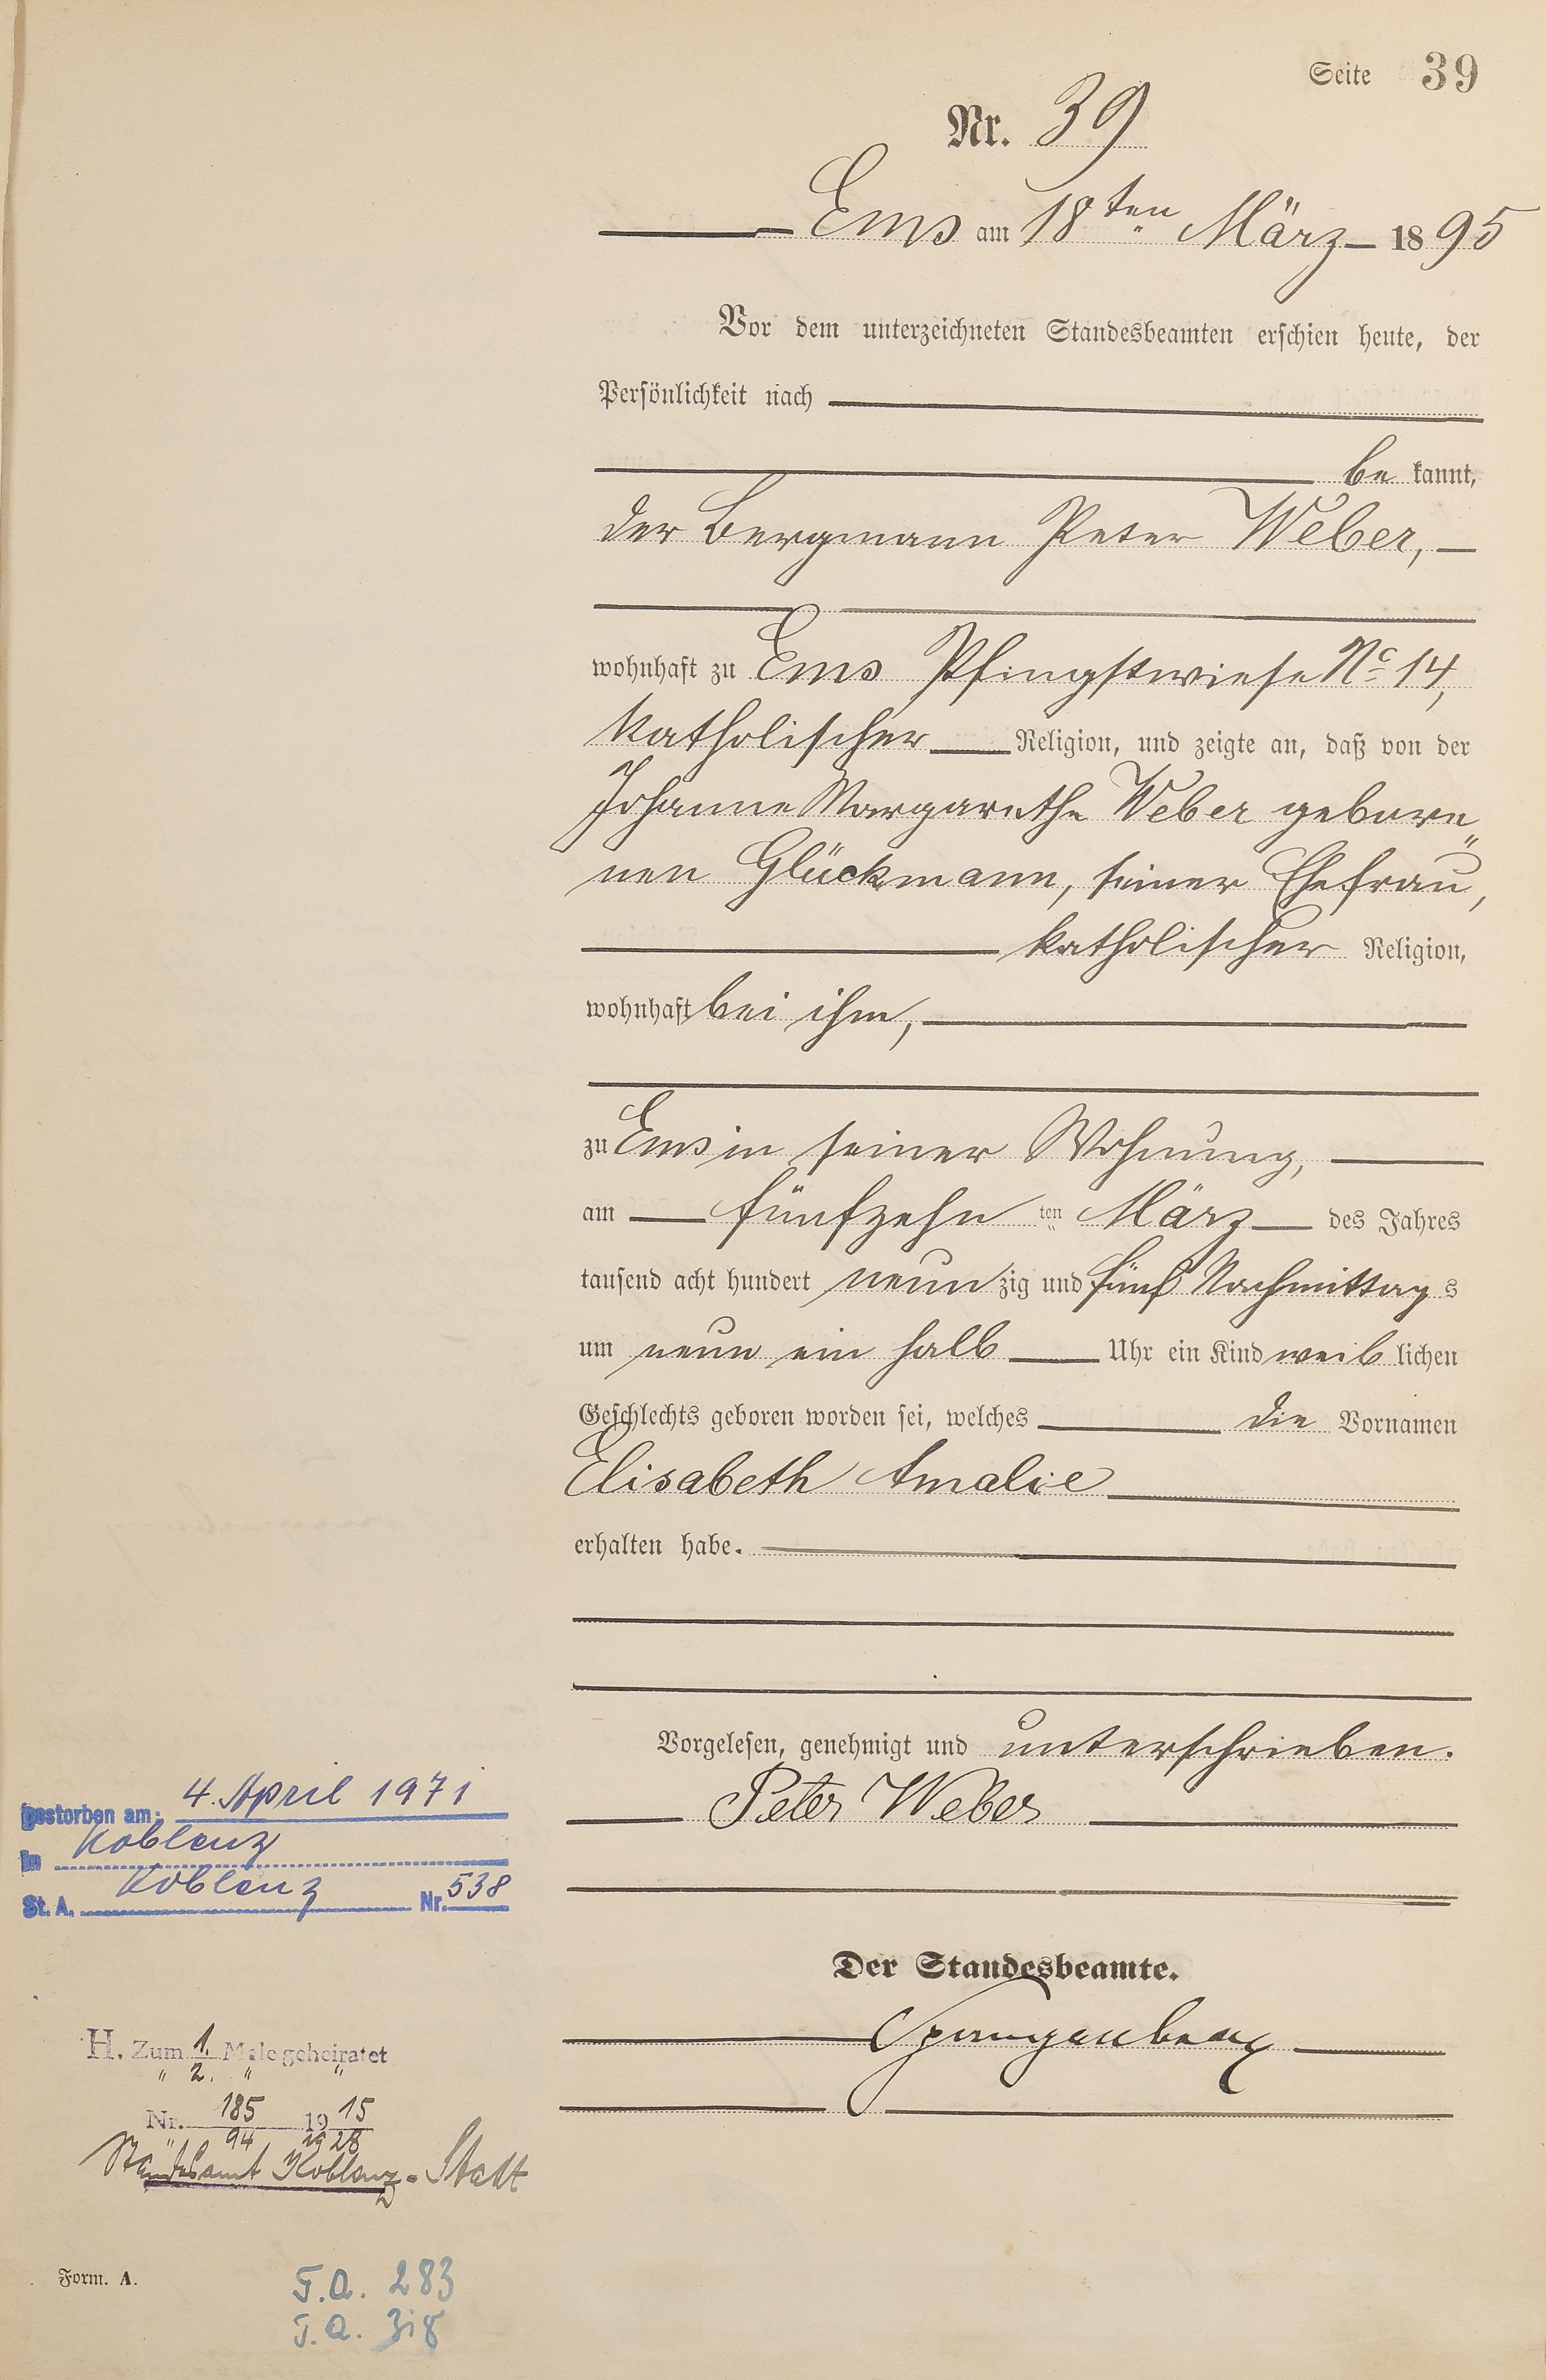 Seite 39
Nr. 39
Ems am 18ten März 1895
Vor dem unterzeichneten Standesbeamten erschien heute, der
Persönlichkeit nach
be kannt,
der Bergmann Peter Weber,
wohnhaft zu Ems Pfingstwiese No 14,
katholischer Religion, und zeigte an, daß von der
Johanne Margarethe Weber gebore„
nen Glückmann, seiner Ehefrau,
katholischer Religion,
wohnhaft bei ihm,
zu Ems in seiner Wohnung,
am fünfzehn ten März des Jahres
tausend acht hundert neun zig und fünf Nachmittag s
um neun ein halb Uhr ein Kind weib lichen
Geschlechts geboren worden sei, welches die Vornamen
Elisabeth Amalie
erhalten habe.
Vorgelesen, genehmigt und unterschrieben.
Peter Weber
Der Standesbeamte.
Spangenberg
gestorben am: 4. April 1971
in Koblenz
St. A. Koblenz Nr. 538
H. Zum 1. Male geheiratet
" 2. " "
Nr. 185 1915
" 94 1928
Standesamt Koblenz-Stadt
Form. A.
T.A. 283
T.A. 318